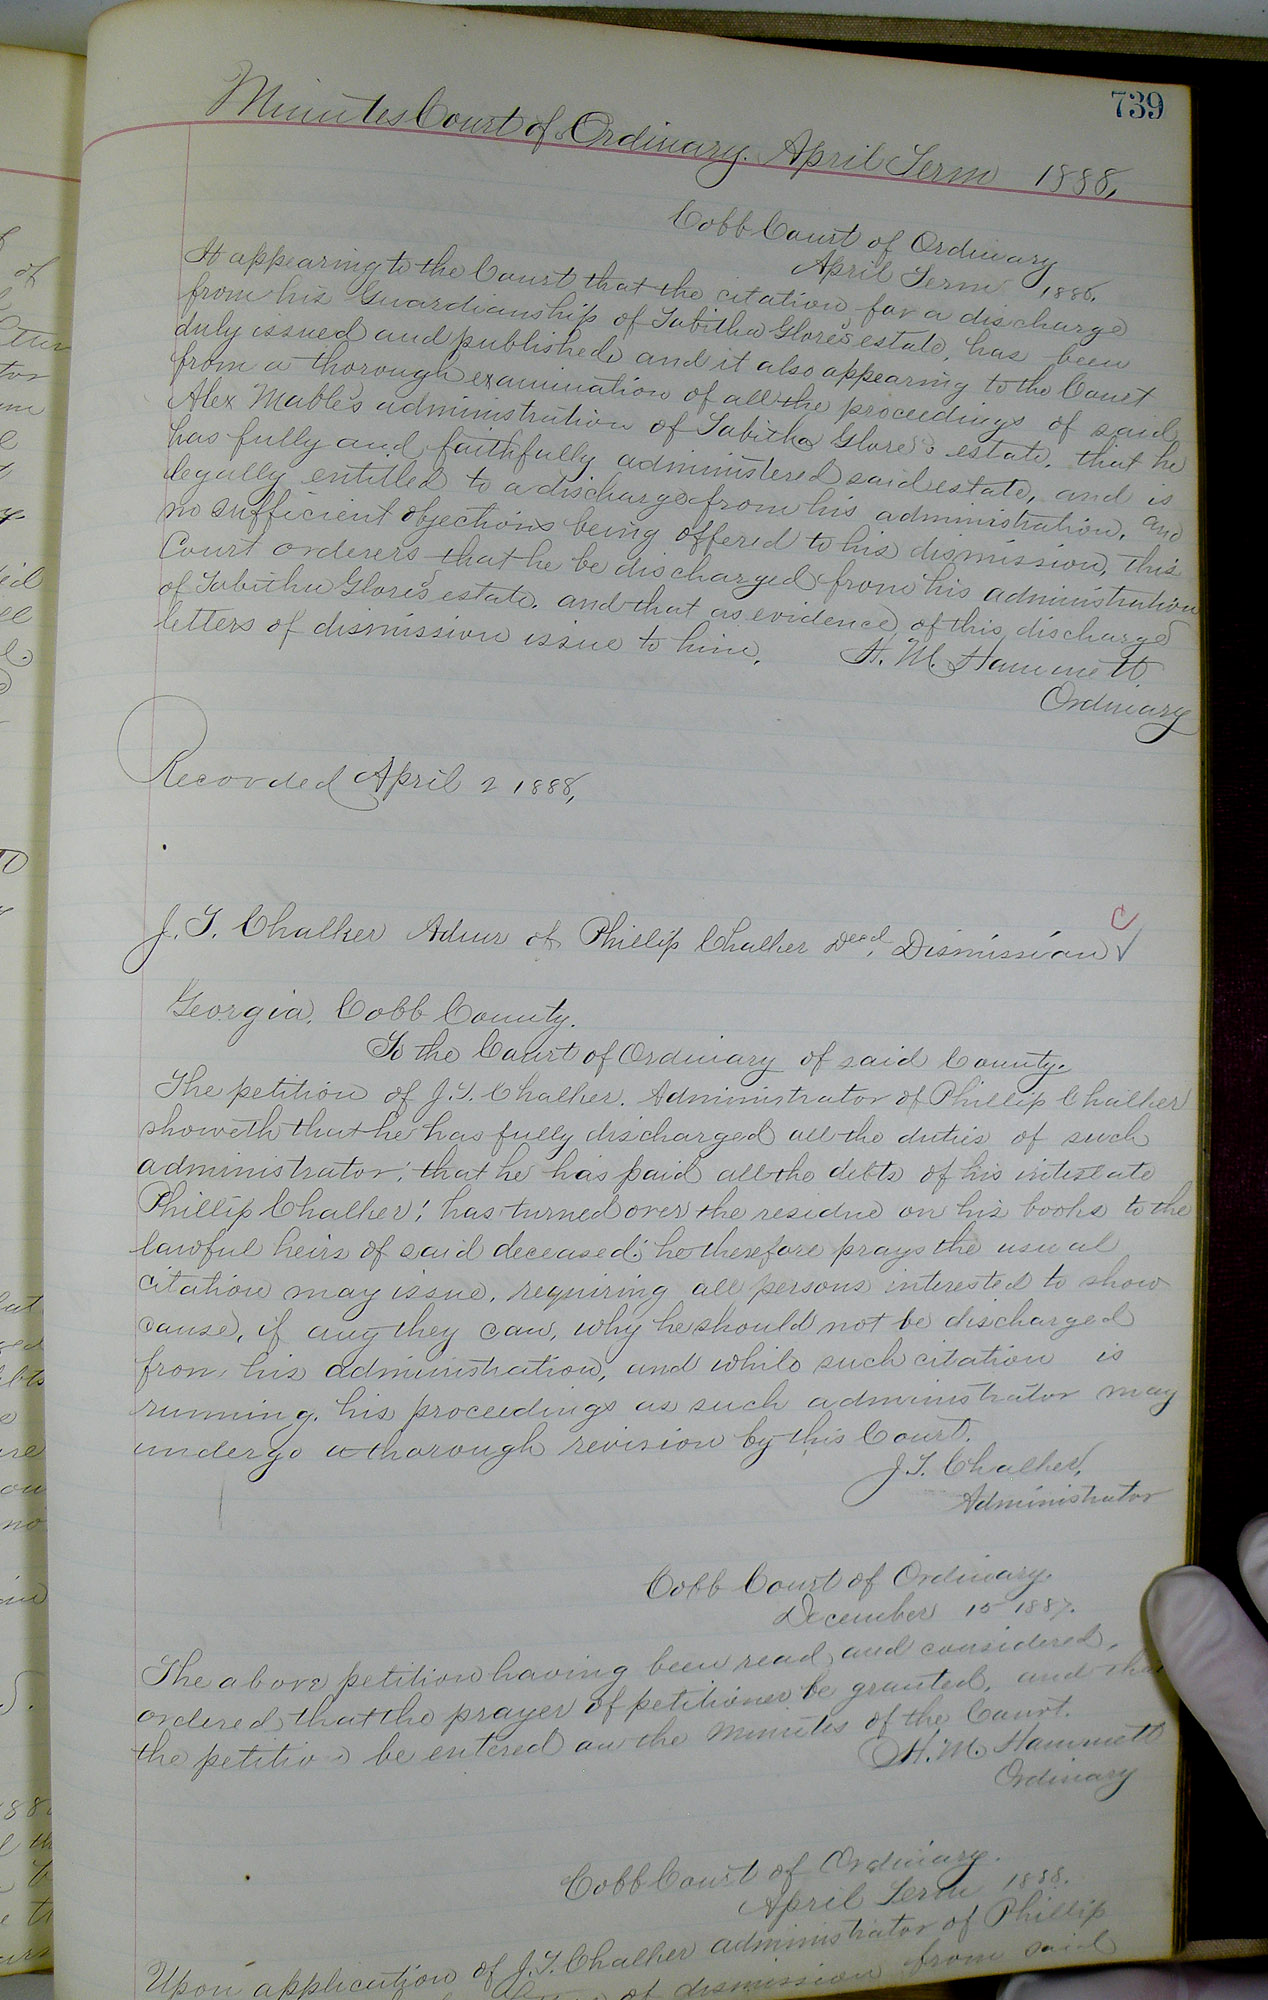 739
Minutes Court of Ordinary. April Term 1888,
Cobb Court of Ordinary
April Term 1888.
It appearing to the Court that the citation for a discharge
from his Guardianship of Tabitha Glore's estate, has been
duly issued and published, and it also appearing to the Court
from a thorough examination of all the proceedings of said
Alex Mable's administration of Tabitha Glore's estate, that he
has fully and faithfully administered said estate, and is
legally entitled to a discharge from his administration, and
no sufficient objections being offered to his dismission, this
Court orderers that he be discharged from his administration
of Tabitha Glore's estate, and that as evidence of this discharge
letters of dismission issue to him. H. M. Hammett
Ordinary
Recorded April 2 1888,
J. T. Chalker Admr of Phillip Chalker Decd, Dismission
C
Georgia, Cobb County.
To the Court of Ordinary of said County.
The petition of J. T. Chalker. Administrator of Phillip Chalker
showeth that he has fully discharged all the duties of such
administrator; that he has paid all the debts of his intestate
Phillip Chalker; has turned over the residue on his books to the
lawful heirs of said deceased; he therefore prays the usual
citation may issue, requiring all persons interested to show
cause, if any they can, why he should not be discharged
from his administration, and while such citation is
running, his proceedings as such administrator may
undergo a thorough revision by this Court.
J. T. Chalker,
Administrator
Cobb Court of Ordinary.
December 15 1887.
The above petition having been read and considered,
ordered that the prayer of petitioner be granted, and that
the petition be entered on the minutes of the Court.
H. M. Hammett
Ordinary
Cobb Court of Ordinary.
April Term 1888.
Upon application of J. T. Chalker administrator of Phillip
of dismission from said